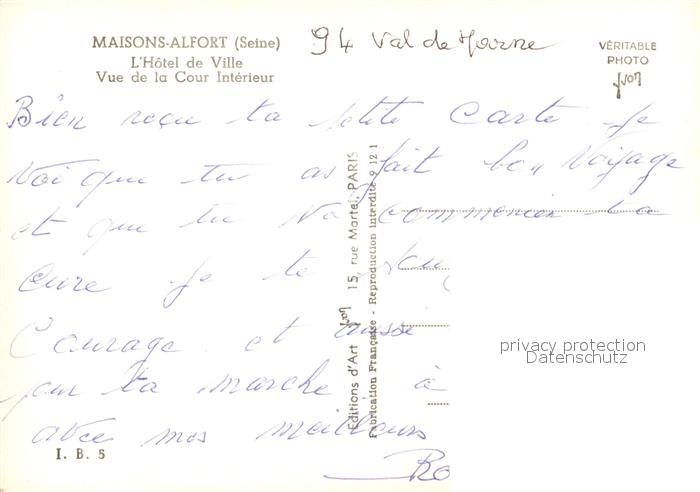 MAISONS-ALFORT (Seine)
L'Hôtel de Ville
Vue de la Cour Intérieur
94 Val de Marne
VÉRITABLE
PHOTO
yvon
Bien reçu ta petite carte je
voi que tu as fait bon voyage
et que tu va commencer ta
cure je te sou
Courage et aussi
pour ta marche à
avec mes meilleurs
Ro
I. B. 5
Editions d'Art yvon 15, rue Martel, PARIS
Fabrication Française - Reproduction Interdite 9 12 1
privacy protection
Datenschutz